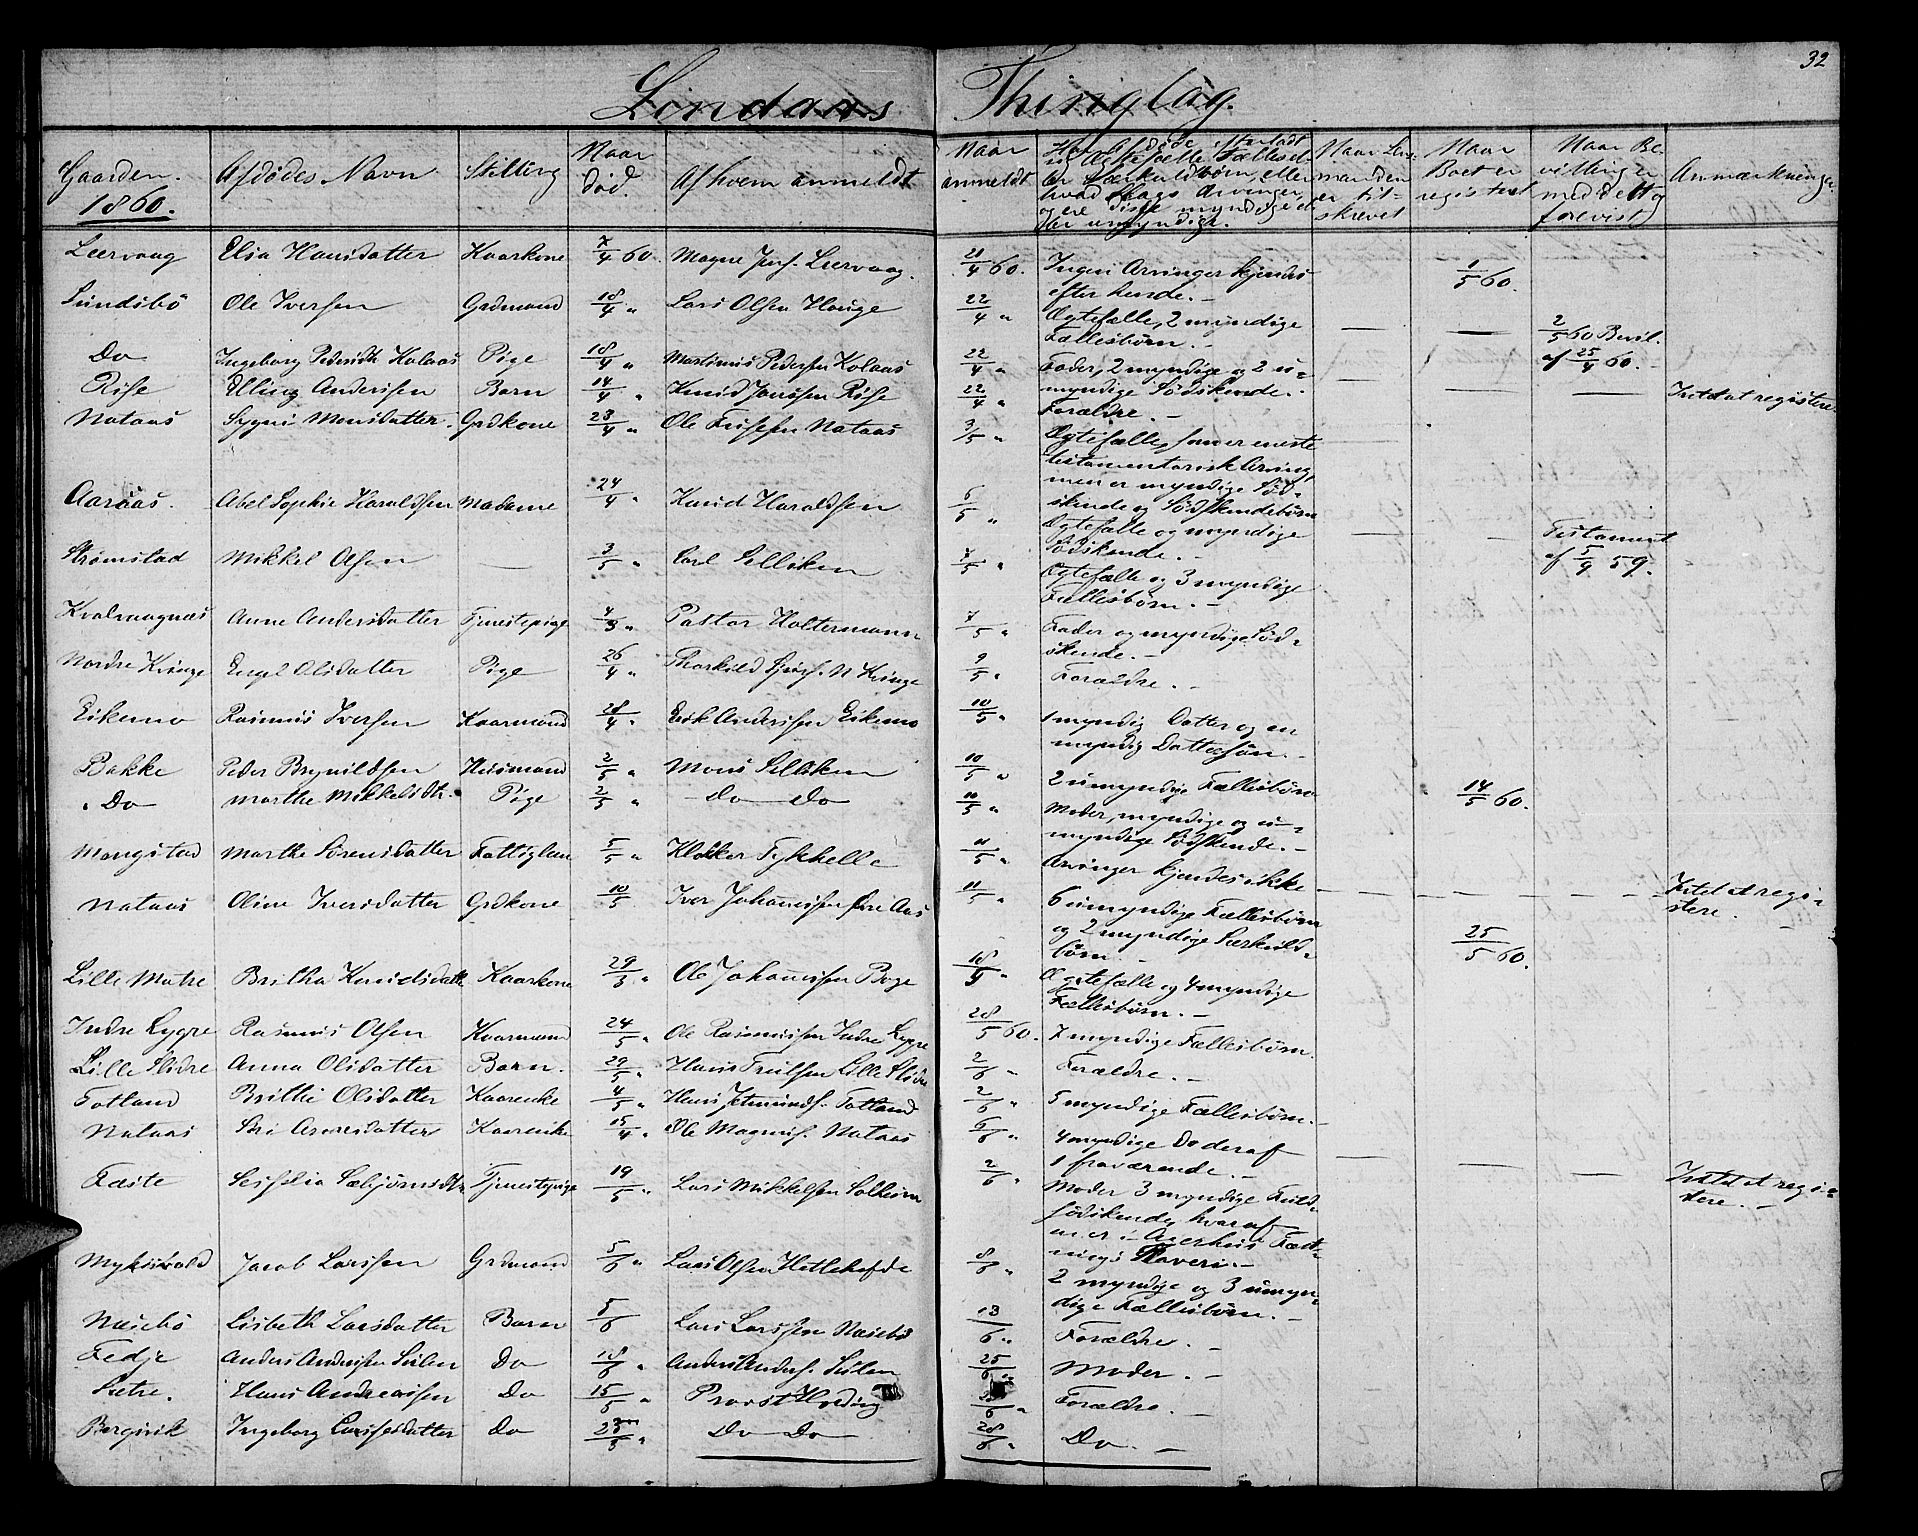 32
Lindaas Thinglag.
Gaarden. 1860. | Afdødes Navn | Stilling | Naar død. | Af hvem anmeldt | Naar anmeldt | Naar Lensmanden er tilskrevet | Naar Boet er registreret | Naar Bevilling er meddelt og forevist | Anmærkninger
Leervaag | Elsa Hansdatter | Kaarkone | 7/4 60. | Magne Jens. Leervaag. | 21/4 60. | Ingen Arvinger kjendes efter hende. – | 1/5 60.
Sundsbø | Ole Iversen | Grdmand | 18/4 " | Lars Olsen Hauge | 22/4 " | Ægtefælle, 2 myndige Fællesbørn. – | — | — | 2/5 60 Bevil. af 25/4 60. –
Do | Ingeborg Pedersdtr Kolaas | Pige | 18/4 " | Martinus Pedersen Kolaas | 22/4 " | Fader, 2 myndige og 2 umyndige Sødskende. –
Risse | Elling Andersen | Barn | 14/4 " | Knud Jonssen Risse | 22/4 " | Forældre. – | — | — | — | Intet at registere
Nataas | Sygni Monsdatter. | Grdkone | 23/4 " | Ole Nataas | 3/5 " | Ægtefælle, som er eneste testamentarisk Arving men er myndige Sødskende og Sødskendebørn
Aaraas. | Abel Sophie Haraldsen | Madame | 24/4 " | Knud Haraldsen | 6/5 " | Ægtefælle og myndige Sødskende. – | — | — | Testament af 5/9 59.
Strømstad | Mikkel Olsen | — | 3/5 " | Carl Selliken | 7/5 " | Ægtefælle og 3 myndige Fællesbørn. –
Kvalvaagnæs | Anne Andersdatter | Tjenestepige | 4/3 " | Pastor Holtermann | 7/5 " | Fader og myndige Sødskende. –
Nordre Kvinge | Engel Olsdatter | Pige | 26/4 " | Thorkild N Kvinge | 9/5 " | Forældre. –
Eikemo | Rasmus Iversen | Kaarmand | 28/4 " | Erik Anderssen Eikemo | 10/5 " | 1 myndig Datter og en myndig Dattersøn. –
Bakke | Peder Brynildsen | Huusmand | 2/5 " | Mons Selliken | 10/5 " | 2 umyndige Fællesbørn
Do | Marthe Mikkelsdtr. | Pige | 2/5 " | Do Do | 10/5 " | Moder, myndige og umyndige Sødskende. – | 14/5 60.
Mongstad | Marthe Sørensdatter | Fattiglem | 5/5 " | Klokker Fykkelle | 11/5 " | Arvinger kjendes ikke | — | — | — | Intet at registere.
Nataas | Oline Iversdatter | Grdkone | 10/5 | Iver Johannessen Øvre Aas | 11/5 " | 6 umyndige Fællesbørn og 2 myndige Særkuldbørn. – | 25/5 60.
Lille Matre | Britha Knudsdatt | Kaarkone | 29/3 " | Ole Johannessen Boge | 18/5 " | Ægtefælle og 4 myndige Fællesbørn. –
Indre Lygre | Rasmus Olsen | Kaarmand | 24/5 " | Ole Rasmussen Indre Lygre | 28/5 60. | 7 myndige Fællesbørn.
Lille Slidre | Anna Olsdatter | Barn. | 29/5 " | Hans Truelsen Lille Slidre | 2/6 " | Forældre. –
Totland | Brithe Olsdatter | Kaarenke | 4/5 " | Hans Totland | 2/6 " | 5 myndige Fællesbørn. –
Nataas | Siri Arnesdatter | Kaarenke | 15/4 " | Ole Magnus. Nataas | 6/6 " | 4 myndige Do deraf 1 fraværende. –
Fæste | Sæbjørnsdtr | Tjenestepige | 19/5 " | Lars Mikkelsen Solheim | 2/6 " | Moder 3 myndige Fuldsødskende, hvoraf en er i Agerhuus Fæstnings Slaveri. – | — | — | — | Intet at registere. –
Myksvold | Jacob Larssen | Grdmand | 5/6 " | Lars Olsen Hetlehofde | 8/6 " | 2 myndige og 3 umyndige Fællesbørn. –
Nasebø | Lisbeth Larsdatter | Barn | 5/6 | Lars Larssen Nasebø | 13/6 " | Forældre. –
Fedje | Anders Anderssen Stilen | Do | 18/6 " | Anders Anderss. Stilen | 25/6 " | Moder. –
Sætre. | Hans Andreassen | Do | 15/5 " | Provst Hveding | 28/6 " | Forældre. –
Børgivik | Ingeborg Larssesdatter | Do | 23/5 " | Do Do | 28/6 " | Do. –